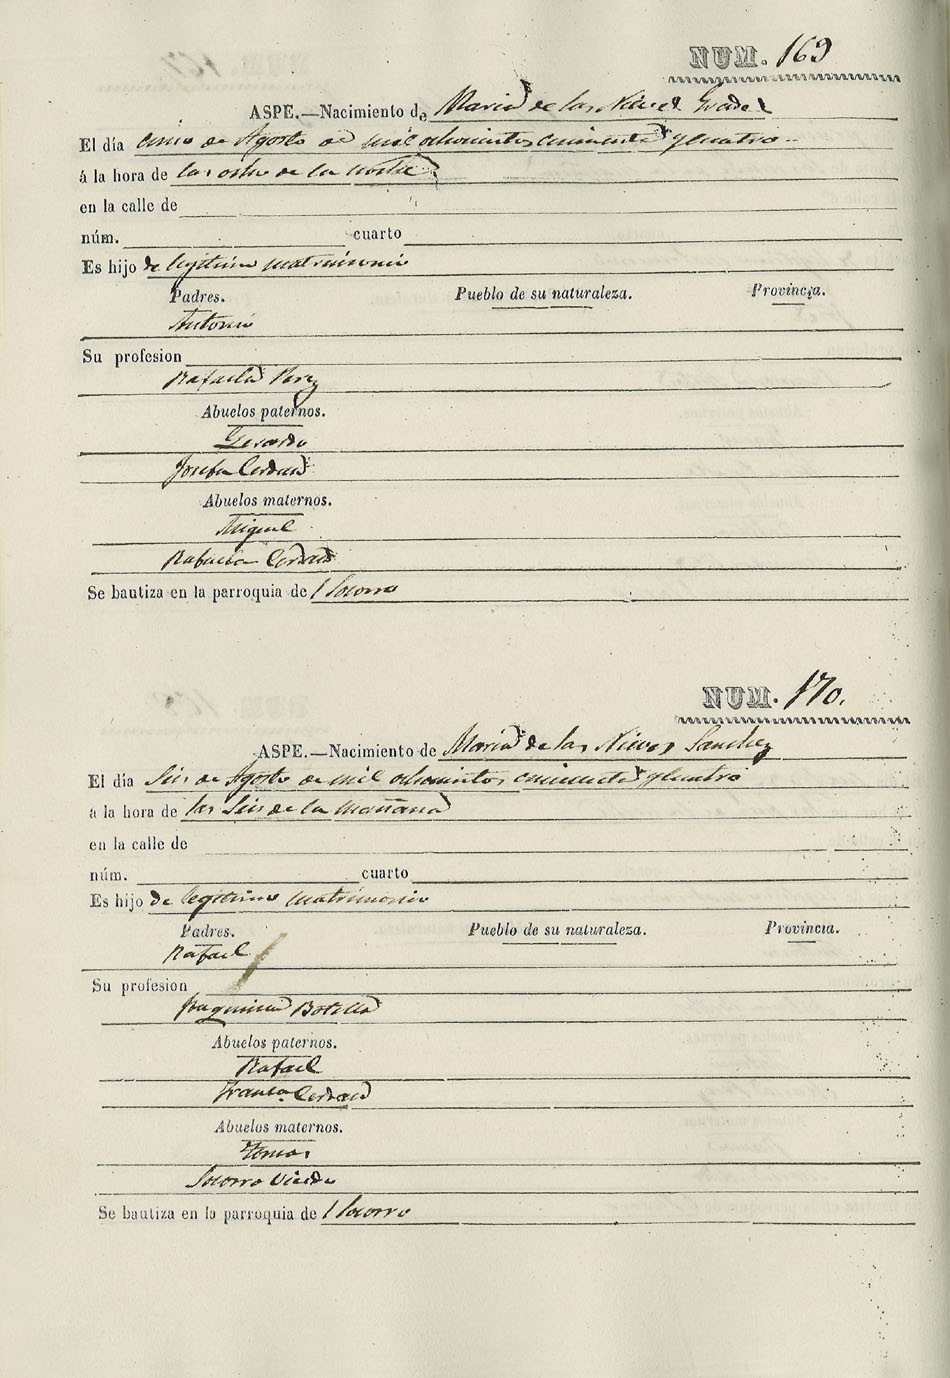 NUM. 169
ASPE.—Nacimiento de Maria de las Nieves
El día cinco de Agosto de mil ochocientos cincuenta y cuatro
á la hora de las ocho de la noche
en la calle de
núm. cuarto
Es hijo de legitimo matrimonio
Padres. Pueblo de su naturaleza. Provincia.
Antonio
Su profesion
Rafaela Perez
Abuelos paternos.
Gerardo
Josefa Cerdan
Abuelos maternos.
Miguel
Rafaela Cerdan
Se bautiza en la parroquia de l Socorro
NUM. 170.
ASPE.—Nacimiento de Maria de las Nieves Sanchez
El día Seis de Agosto de mil ochocientos cincuenta y cuatro
á la hora de las Seis de la mañana
en la calle de
núm. cuarto
Es hijo de legitimo matrimonio
Padres. Pueblo de su naturaleza. Provincia.
Rafael
Su profesion
Joaquina Botella
Abuelos paternos.
Rafael
Franca. Cerdan
Abuelos maternos.
Tomas
Socorro
Se bautiza en la parroquia de l Socorro